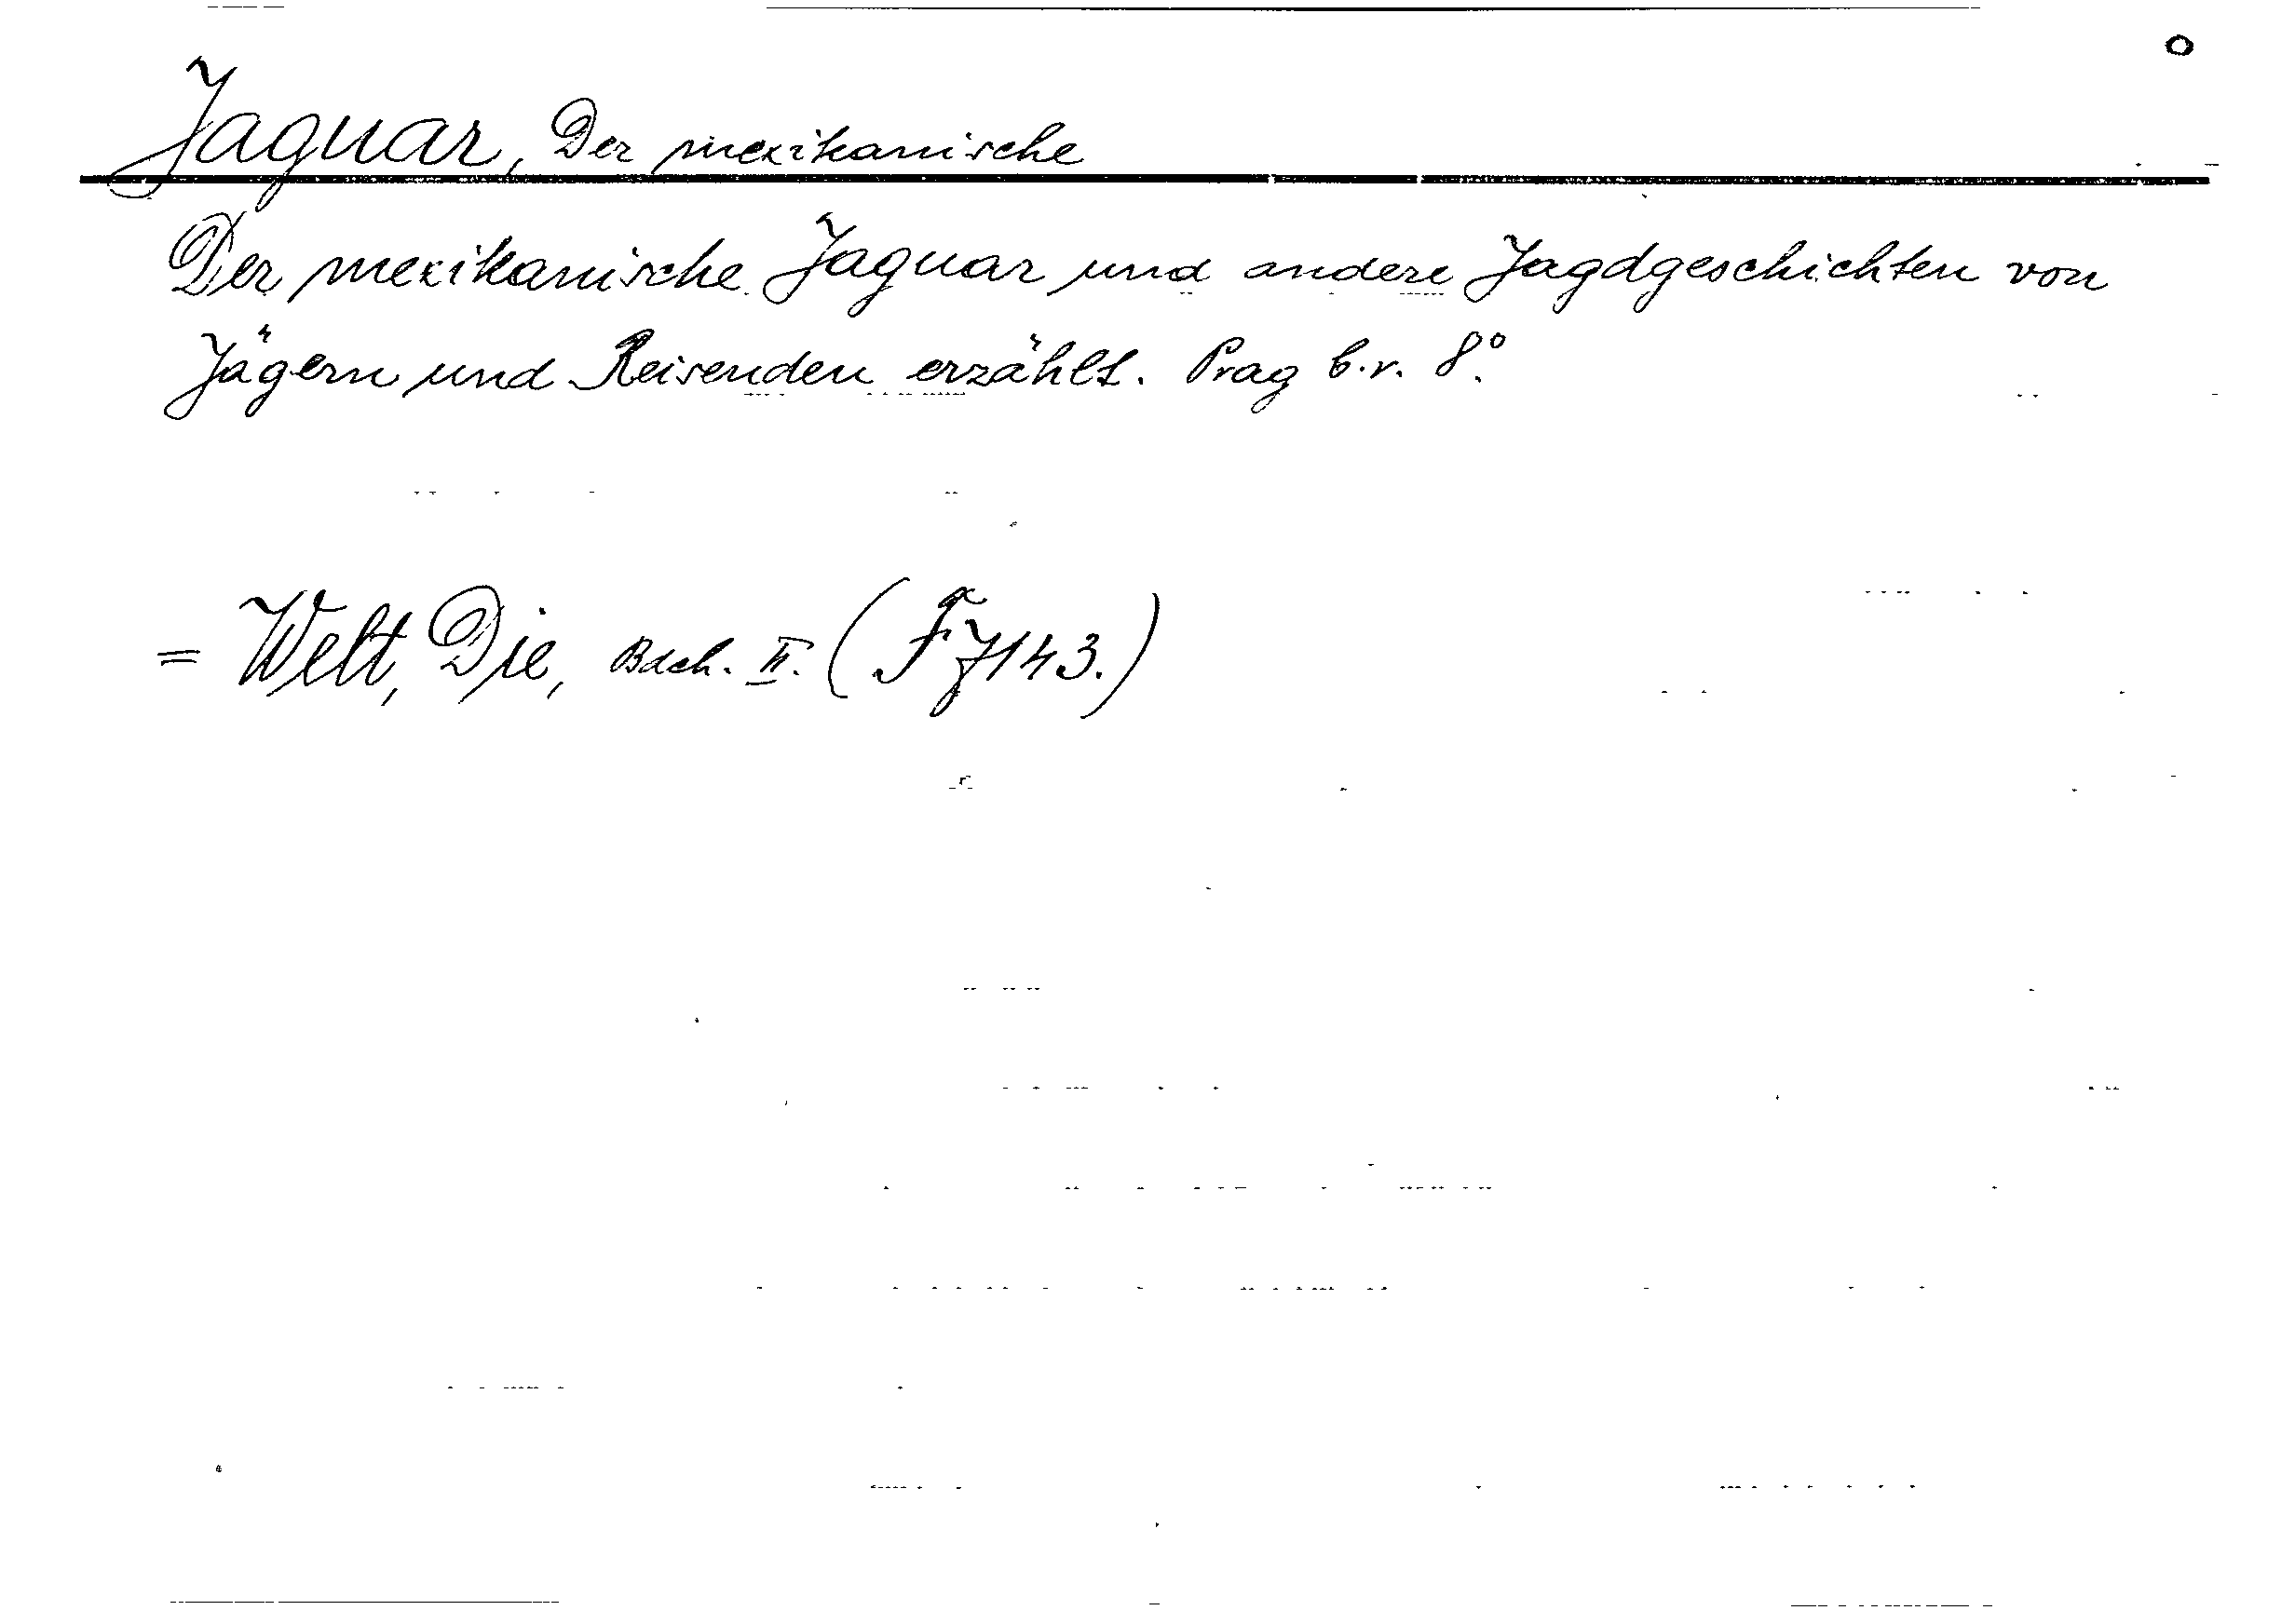 Jaguar, Der mexikanische
Der mexikanische Jaguar und andere Jagdgeschichten von
Jägern und Reisenden erzählt. Prag b.r. 8°.
= Welt, Die, Bdch. II. (F 7143.)